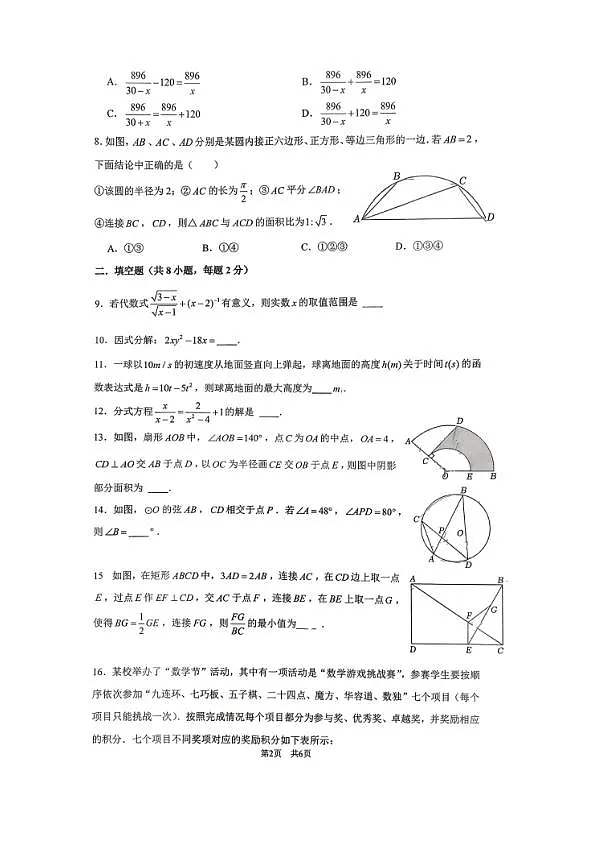 A. 896/(30-x) - 120 = 896/x B. 896/(30-x) + 896/x = 120
C. 896/(30+x) = 896/x + 120 D. 896/(30-x) + 120 = 896/x
8.如图，AB、AC、AD分别是某圆内接正六边形、正方形、等边三角形的一边．若AB=2，
下面结论中正确的是（ ）
①该圆的半径为2；②AC的长为π/2；③AC平分∠BAD；
④连接BC，CD，则△ABC与ACD的面积比为1:√3．
A B C D
A．①③ B．①④ C．①②③ D．①③④
二．填空题（共8小题，每题2分）
9．若代数式√(3-x)/√(x-1)+(x-2)⁻¹有意义，则实数x的取值范围是 ____
10．因式分解：2xy²-18x=____．
11．一球以10m/s的初速度从地面竖直向上弹起，球离地面的高度h(m)关于时间t(s)的函
数表达式是h=10t-5t²，则球离地面的最大高度为____m．
12．分式方程x/(x-2)=2/(x²-4)+1的解是 ____．
13．如图，扇形AOB中，∠AOB=140°，点C为OA的中点，OA=4，
CD⊥AO交AB于点D，以OC为半径画CE交OB于点E，则图中阴影
部分面积为 ____．
A D C O E B
14．如图，⊙O的弦AB，CD相交于点P．若∠A=48°，∠APD=80°，
则∠B=____°．
B C P O A D
15 如图，在矩形ABCD中，3AD=2AB，连接AC，在CD边上取一点
E，过点E作EF⊥CD，交AC于点F，连接BE，在BE上取一点G，
使得BG=1/2GE，连接FG，则FG/BC的最小值为____．
A B G F D E C
16．某校举办了“数学节”活动，其中有一项活动是“数学游戏挑战赛”，参赛学生要按顺
序依次参加“九连环、七巧板、五子棋、二十四点、魔方、华容道、数独”七个项目（每个
项目只能挑战一次）．按照完成情况每个项目都分为参与奖、优秀奖、卓越奖，并奖励相应
的积分．七个项目不同奖项对应的奖励积分如下表所示：
第2页 共6页